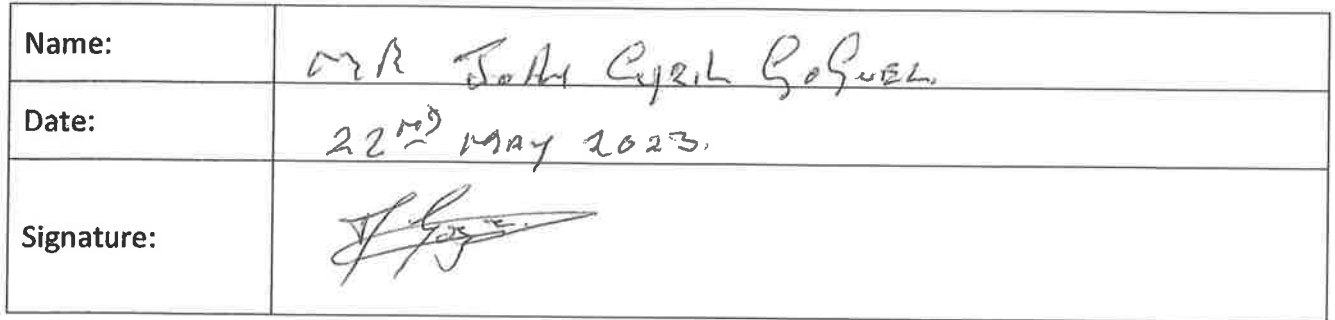 Name: MR John Cyril Goguel.
Date: 22ND MAY 2023.
Signature: